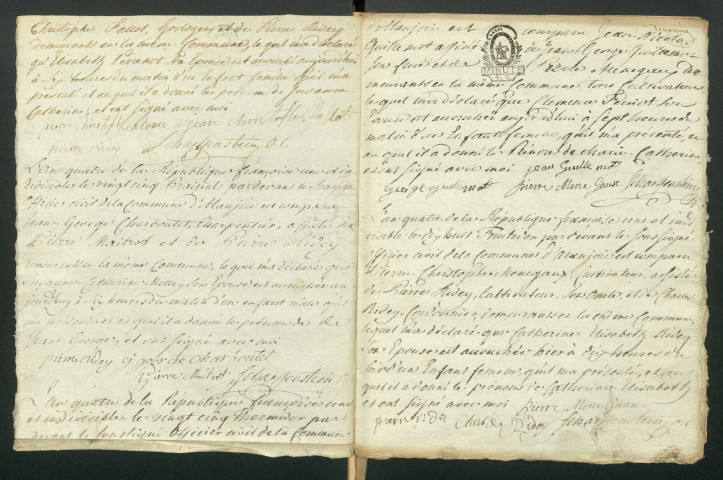 Christophe Parrot, horloger et de Pierre Bidey
demeurants en la même Commune, lequel m'a déclaré
qu'Elisabeth son Epouse est accouchée aujourd'hui
à six heures du matin d'un Enfant femeau qu'il m'a
présenté et auquel il a donné les prénoms de Susanne
Catherine, et ont signé avec moi
pierre bidey Scharffenstein O C
L'an quatre de la République françoise une et in
divisible le vingt cinq Prairial pardevant le soussigné
Officier civil de la Commune d'Allanjoie est comparu
Jean George Charboutet, Charpentier, assisté de
Pierre Maitrot et de Pierre Bidey
demeurants en la même Commune, lequel m'a déclaré que
Susanne Catherine son Epouse est accouchée au
jourd'huy à six heures du matin d'un enfant mâle qu'il
m'a présenté et auquel il a donné les prénoms de
Jean George, et ont signé avec moi
pierre bidey j george Charboutet
Pierre Maitrot Scharffenstein
L'an quatre de la République françoise une
et indivisible le vingt cinq Thermidor par
devant le soussigné Officier civil de la Commune
d'Allanjoie est comparu Jean Nicolas
Guillemot assisté de Jean George Guillemot
son frère et de Pierre Menegaux de
meurants en la même Commune, tous cultivateurs
lequel m'a déclaré que Clemence son
Epouse est accouchée aujourd'hui à sept heures du
matin d'un Enfant femeau, qu'il m'a présenté, et
auquel il a donné le Prénom de Marie Catherine
et ont signé avec moi jean Guillemot
george guillemot pierre Mene Gaux Scharffenstein
L'an quatre de la République françoise une et indi
visible le dix huit Fructidor par devant le soussigné
officier civil de la Commune d'Alanjoie est comparu
Pierre Christophe Menegaux, Cultivateur, assisté
de Pierre Bidey, Cultivateur, son Oncle, et de Charle
Bidey, demeurants en la même Commune
lequel m'a déclaré, que Catherine Elisabeth Bidey
son Epouse est accouchée hier à dix heures du
soir d'un Enfant femeau, qu'il m'a présenté, et au
quel il a donné le prénom de Catherine Elisabeth
et ont signé avec moi Pierre Mene Gaux
pierre bidey Charle Bidey Scharffenstein oc